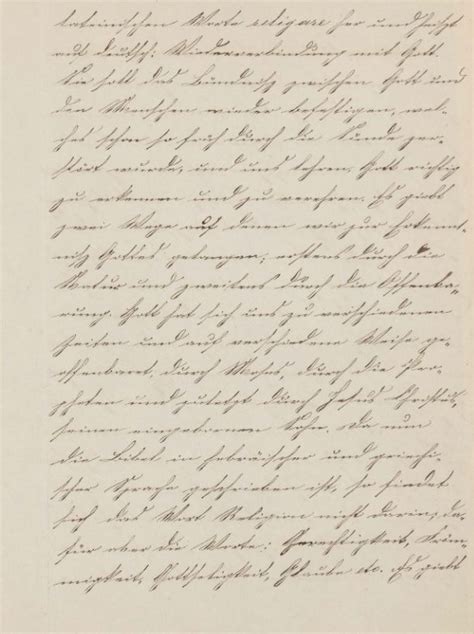 lateinischen Worte religare her und heißt
auf deutsch: Wiederverbindung mit Gott.
Sie soll das Bündniß zwischen Gott und
den Menschen wieder befestigen, wel-
ches schon so früh durch die Sünde zer-
stört wurde, und uns lehren, Gott richtig
zu erkennen und zu verehren. Es giebt
zwei Wege auf denen wir zur Erkennt-
niß Gottes gelangen; erstens durch die
Natur und zweitens durch die Offenba-
rung. Gott hat sich uns zu verschiedenen
Zeiten und auf verschiedene Weise ge-
offenbaret, durch Moses, durch die Pro-
pheten und zuletzt durch Jesus Christus,
seinen eingebornen Sohn. Da nun
die Bibel in hebräischer und griechi-
scher Sprache geschrieben ist, so findet
sich das Wort Religion nicht darin, da-
für aber die Worte: Gerechtigkeit, Fröm-
migkeit, Gottseligkeit, Glaube etc. Es giebt